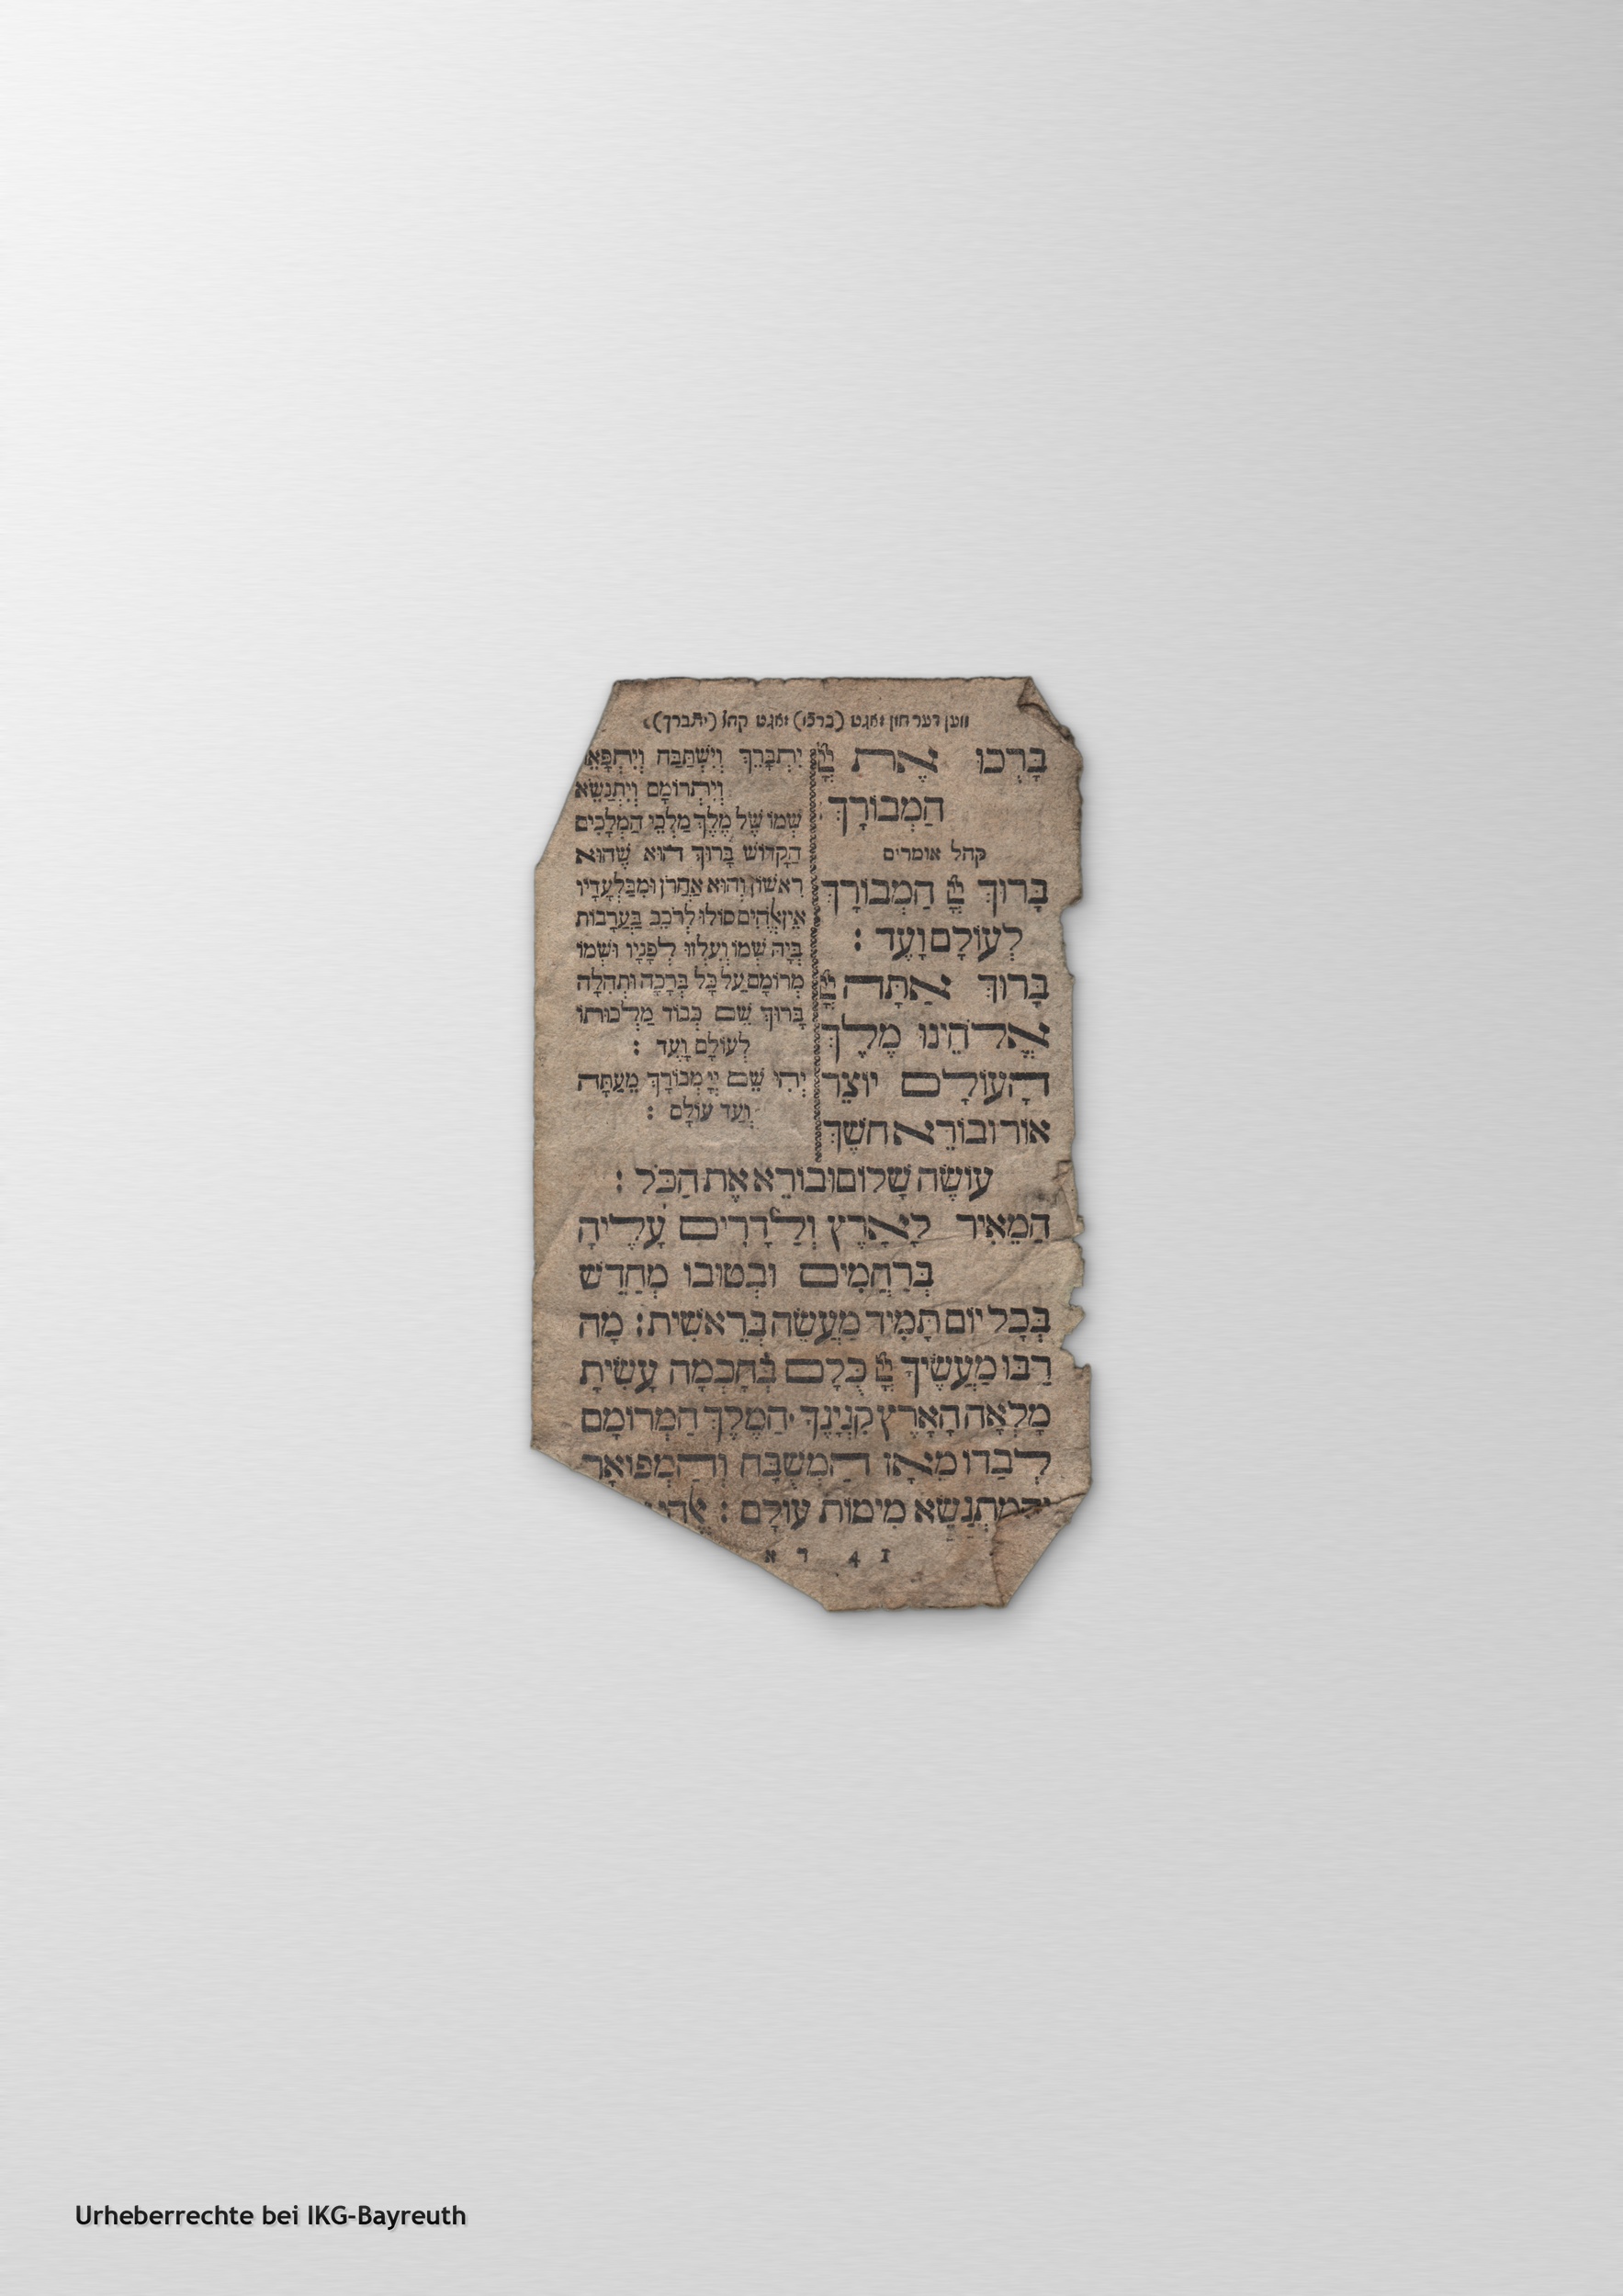 ווען דער חזן זאגט (ברכו) זאגט קהל (יתברך)
בָּרְכוּ אֶת יְיָ
הַמְבוֹרָךְ :
קהל אומרים
בָּרוּךְ יְיָ הַמְבוֹרָךְ
לְעוֹלָם וָעֶד :
בָּרוּךְ אַתָּה יְיָ
אֱלֹהֵינוּ מֶלֶךְ
הָעוֹלָם יוֹצֵר
אוֹר וּבוֹרֵא חשֶׁךְ
יִתְבָּרֵךְ וְיִשְׁתַּבַּח וְיִתְפָּאֵר
וְיִתְרוֹמָם וְיִתְנַשֵּׂא
שְׁמוֹ שֶׁל מֶלֶךְ מַלְכֵי הַמְלָכִים
הַקָדוֹשׁ בָּרוּךְ הוּא שֶׁהוּא
רִאשׁוֹן וְהוּא אַחֲרֹן וּמִבַּלְעָדָיו
אֵין אֱלֹהִים סוֹלוּ לָרֹכֵב בַּעֲרָבוֹת
בְּיָהּ שְׁמוֹ וְעִלְזוּ לְפָנָיו וּשְׁמוֹ
מְרוֹמָם עַל כָּל בְּרָכָה וּתְהִלָּה
בָּרוּךְ שֵׁם כְּבוֹד מַלְכוּתוֹ
לְעוֹלָם וָעֶד :
יְהִי שֵׁם יְיָ מְבוֹרָךְ מֵעַתָּה
וְעַד עוֹלָם :
עוֹשֶׂה שָׁלוֹם וּבוֹרֵא אֶת הַכֹּל :
הַמֵּאִיר לָאָרֶץ וְלַדָּרִים עָלֶיהָ
בְּרַחֲמִים וּבְטוּבוֹ מְחַדֵּשׁ
בְּכָל יוֹם תָּמִיד מַעֲשֵׂה בְרֵאשִׁית : מָה
רַבּוּ מַעֲשֶׂיךָ יְיָ כֻּלָּם בְּחָכְמָה עָשִׂיתָ
מָלְאָה הָאָרֶץ קִנְיָנֶךָ הַמֶּלֶךְ הַמְרוֹמָם
לְבַדּוֹ מֵאָז הַמְשֻׁבָּח וְהַמְפוֹאָר
וְהַמִתְנַשֵּׂא מִימוֹת עוֹלָם :
א ד 4 1
Urheberrechte bei IKG-Bayreuth